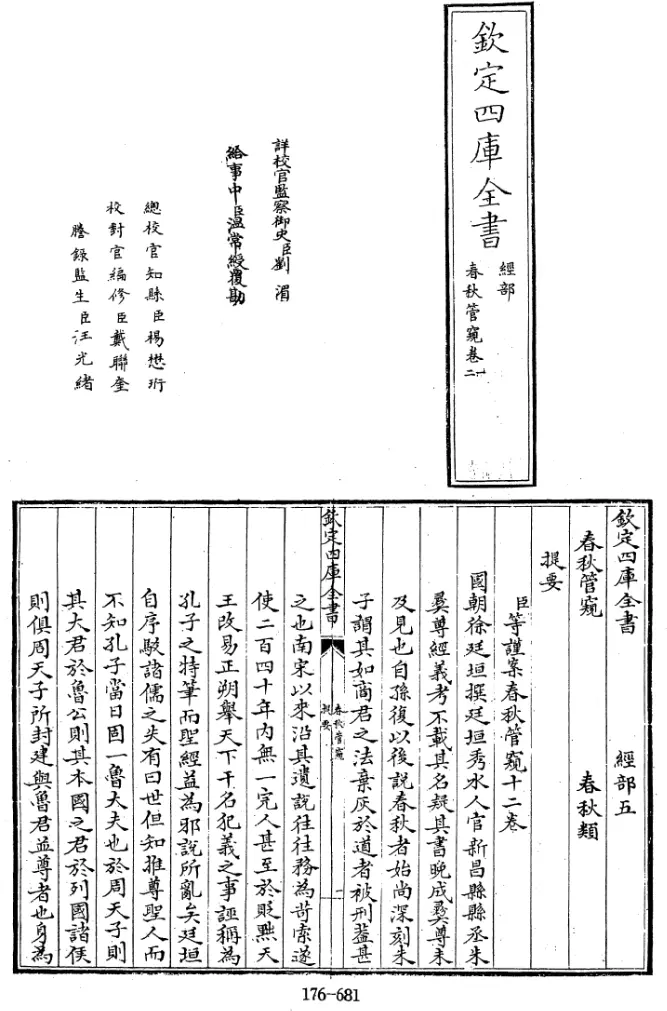 欽定四庫全書
經部
春秋管窺卷一二
詳校官監察御史臣劉湄
給事中臣溫常綬覆勘
總校官知縣臣楊懋珩
校對官編修臣戴聯奎
謄錄監生臣汪光緒
欽定四庫全書 經部五
春秋管窺 春秋類
提要
臣等謹案春秋管窺十二卷
國朝徐廷垣撰廷垣秀水人官新昌縣縣丞朱
彝尊經義考不載其名疑其書晚成彝尊未
及見也自孫復以後說春秋者始尚深刻朱
子謂其如商君之法棄灰於道者被刑蓋甚
欽定四庫全書
春秋管窺
提要
一
之也南宋以來沿其遺說往往務為苛索遂
使二百四十年內無一完人甚至於貶黜天
王改易正朔舉天下干名犯義之事誣稱為
孔子之特筆而聖經益為邪說所亂矣廷垣
自序駮諸儒之失有曰世但知推尊聖人而
不知孔子當日固一魯大夫也於周天子則
其大君於魯公則其本國之君於列國諸侯
則俱周天子所封建與魯君並尊者也身為
176-681